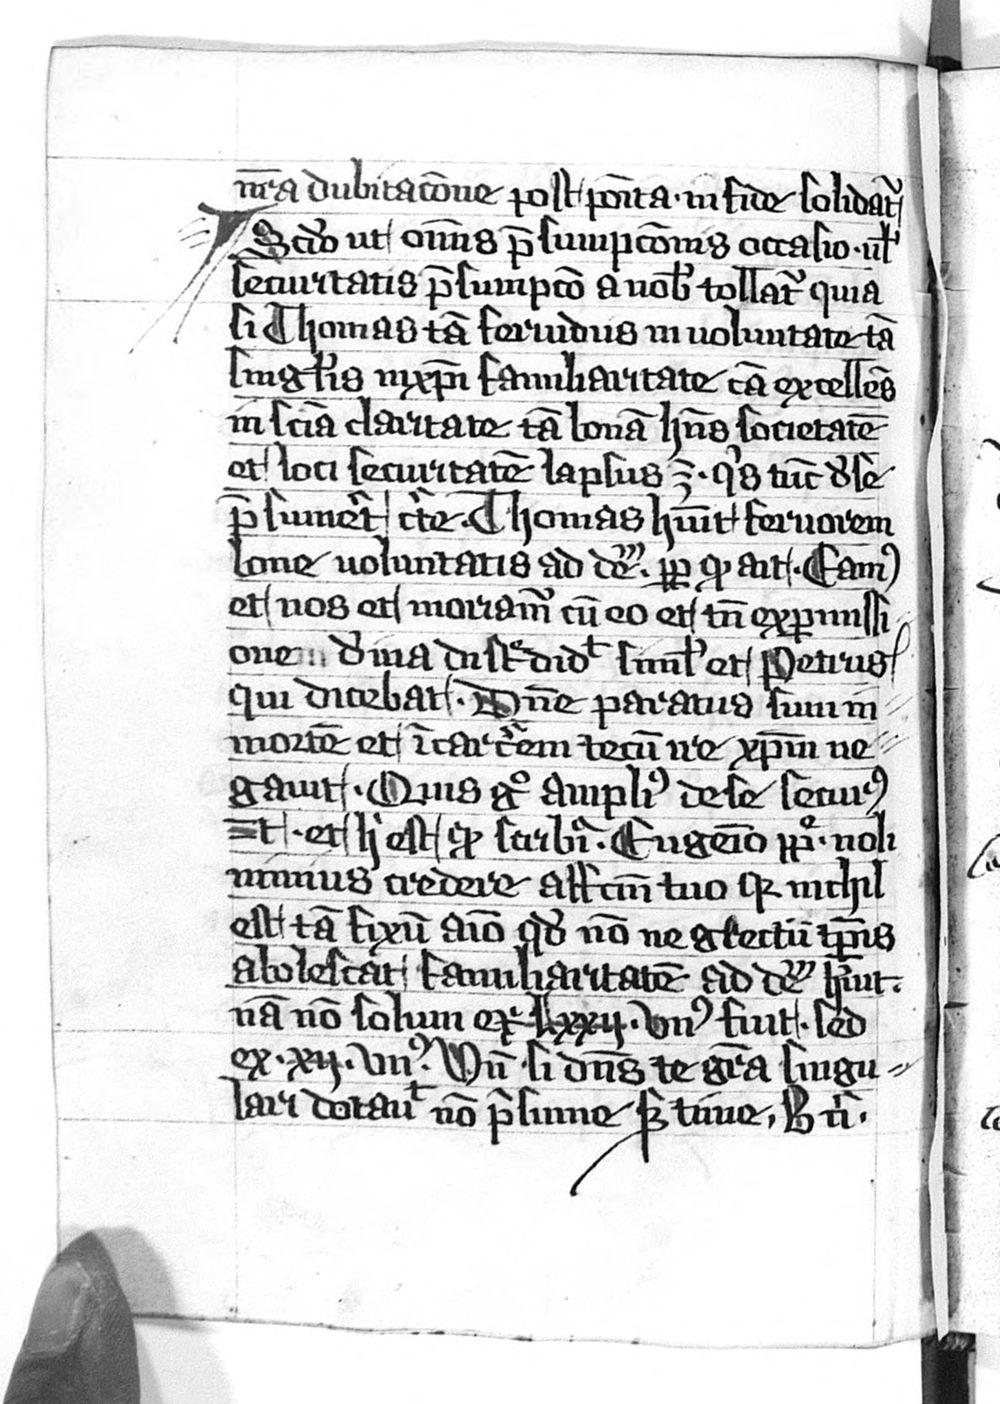 nr̄a dubitac̄one post po͞ita · in fide solidat᷑
Scd̵o ut om̄is p̄sumpc̄onis occasio · ul̵
securitatis p̄sumpc̄o a nob̵ tollat᷑ quia
si Thomas tā feruidus in uoluntate tā
singl̵is in xp̄i familiaritate tā excellēs
in sciā claritate tā bonā hn̄s societatē
et loci securitatē lapsus ē · q's tūc de se
p̄sumer̄t c̄te · Thomas hūit feruorem
bone uoluntatis ad deū · ꝓp̄ qd ait · Eam᷒
et nos et moriam᷒ cū eo et tn̄ ex pmissi
one diuina di sc̄ did t simil̵ et Petrus
qui dicebat · Dn̄e paratus sum in
mortē et ī carc̄em tecū ire xp̄m ne
gauit · Quis gͦ ampli᷒ de se secur᷒
ēt · et h̄ est qd scrib̄ · Eugenio pp̄ · noli
nimius credere affc̄ui tuo qꝛ nichil
est tā fixū aīo qd̵ nō neglectu tp̄is
abolescat familiaritatē ad deū h̄uit ·
nā nō solum ex lxxij · vn᷒ fuit · sed
ex · xij · vn᷒ Vn̄ si dn̄s te gr̄a singu
lari dotauit nō p̄sume s̵ time , B n̄ ·